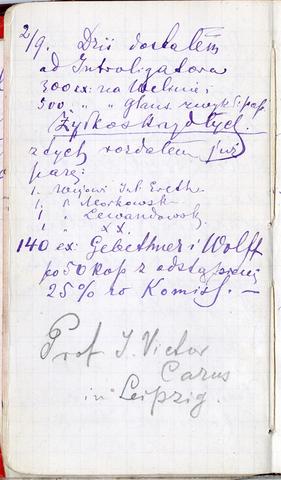 2/9. Dziś dostałem
od Introligatora
300 ex: na Welinie i
500 " " glans. zwykł. pap.
Żyłkoskrzydłych.
z tych rozdałem już
parę:
1. Wujowi Inż. Ereth.
1 " Morkowsk.
1 " Lewandowsk.
1 " XX.
140 ex: Gebethner i Wolff
po 50 kop z odstąpieniem
25% w Komis. —
Prof J. Victor
Carus
in Leipzig.